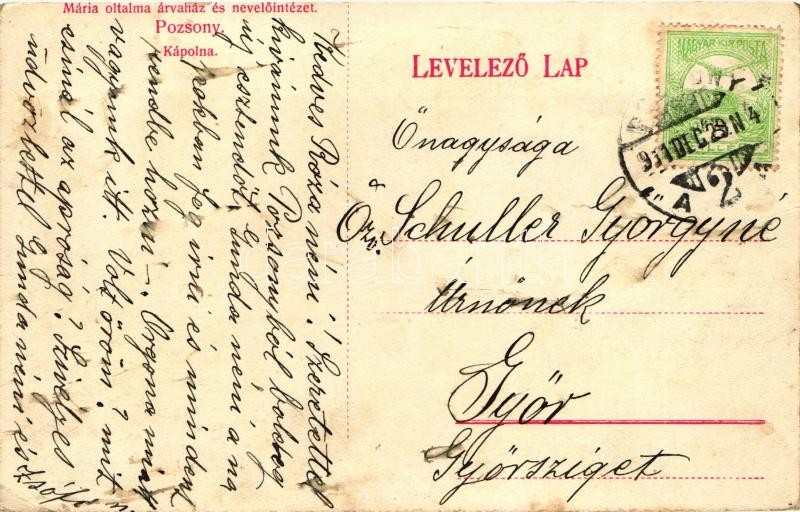 Mária oltalma árvaház és nevelőintézet.
Pozsony.
Kápolna.
LEVELEZŐ LAP
MAGYAR KIR. POSTA
911 DEC 29 N 4
A 2
Őnagysága
Özv. Schuller Györgyné
Úrnőnek
Győr
Győrsziget
Kedves Róza néni! Szeretettel
kivánunk Pozsonyból boldog
új esztendőt, Gunda néni a na
pokban fog irni és mindent
rendbe hozni –. Orgona miatt
vagyunk itt. Volt öröm? mit
csinál az apróság? Szívélyes
üdvözlettel Gunda néni és Zsófi